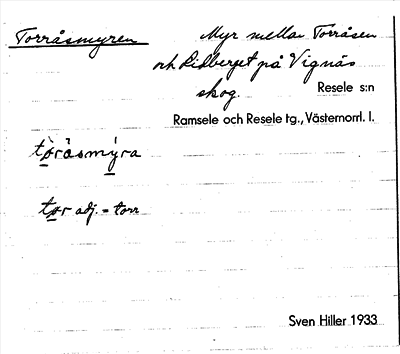 Torråsmyren
Myr mellan Torråsen
och Lidberget på Vignäs
skog.
Resele s:n
Ramsele och Resele tg., Västernorrl. l.
tòråsmýra
tor adj. = torr
Sven Hiller 1933